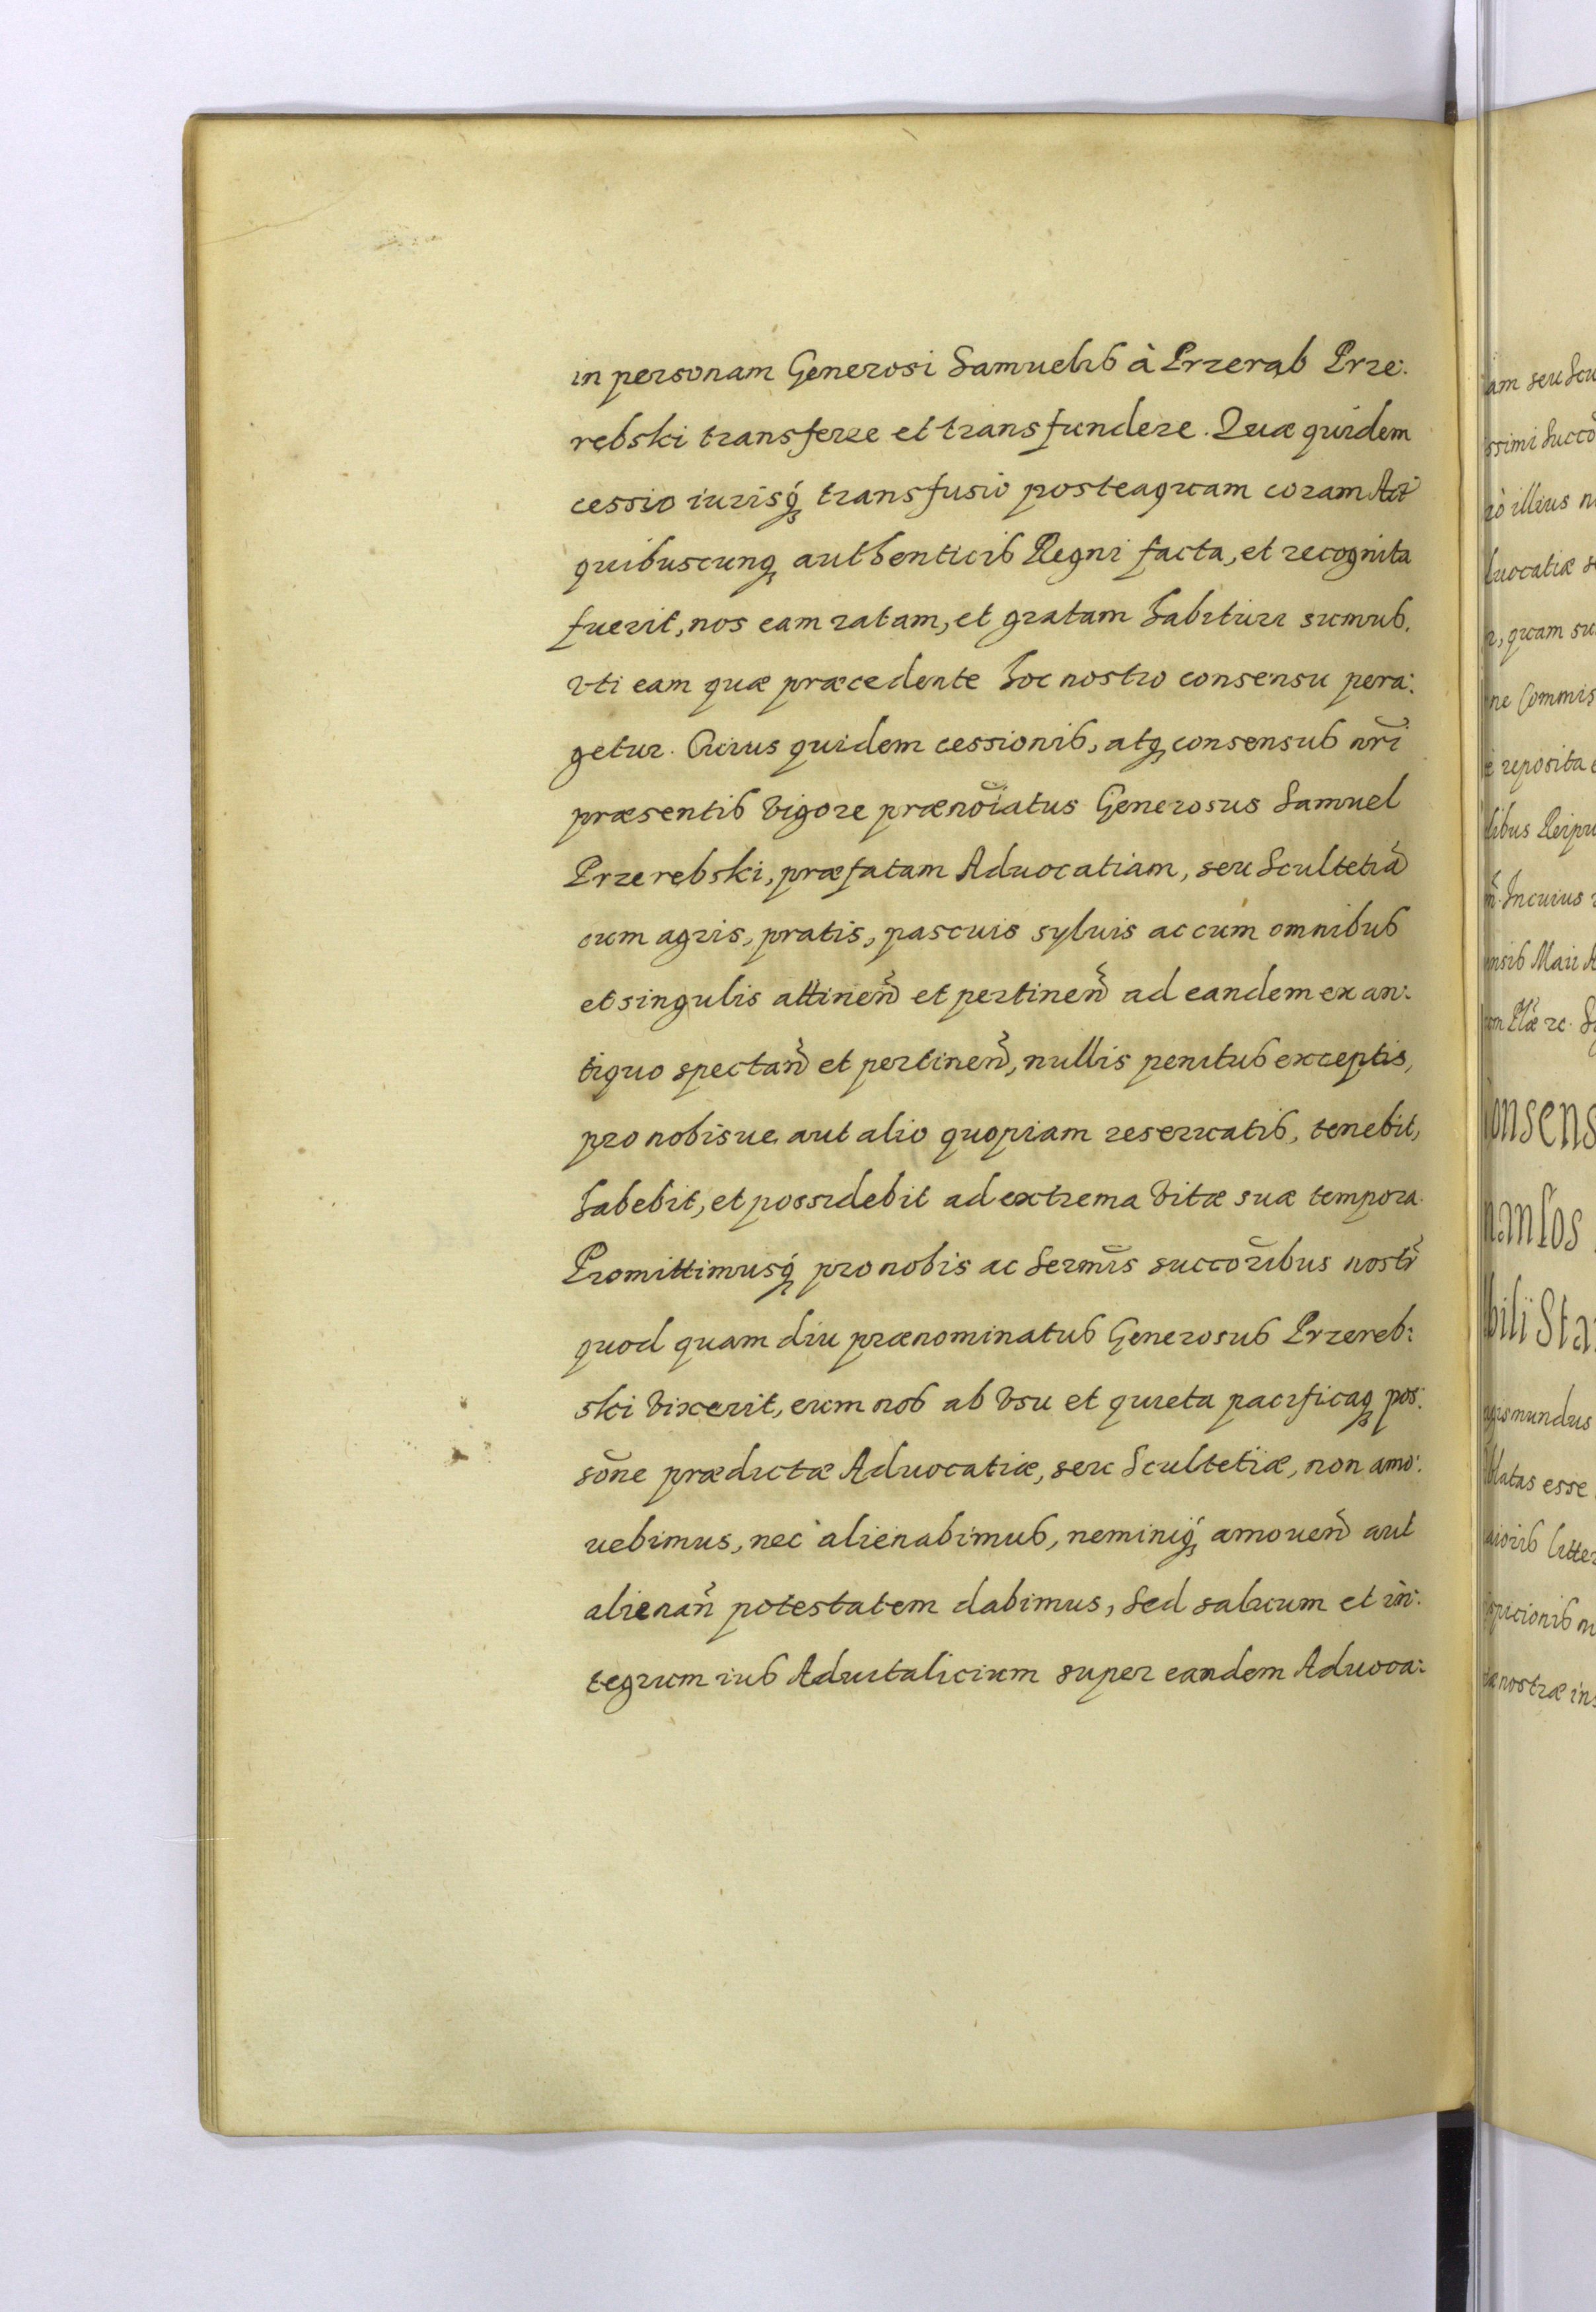 in personam Generosi Samuelis à Przerąb Prze:
rębski transferre et transfundere. Quæ quidem
cessio iurisq́ꝫ transfusio posteaquam coram Act
quibuscunqꝫ authenticis Regni facta, et recognita
fuerit, nos eam ratam, et gratam habituri sumus.
vti eam quæ præcedente hoc nostro consensu pera:
getur. Cuius quidem cessionis, atqꝫ consensus nr̃i
præsentis vigore prænoĩatus Generosus Samuel
Przerębski, præfatam Aduocatiam, seu Scultetiã
cum agris, pratis, pascuis syluis ac cum omnibus
et singulis attineñ et pertineñ ad eandem ex an:
tiquo spectañ et pertineñ, nullis penitus exceptis,
pro nobisue aut alio quopiam reseruatis, tenebit,
habebit, et possidebit ad extrema vitæ suæ tempora.
Promittimusq́ꝫ pro nobis ac Serm̃is succõribus nostr̃
quod quam diu prænominatus Generosus Przereb:
ski vixerit, eum nos ab vsu et quieta pacificaqꝫ pos:
sõne prædictæ Aduocatiæ, seu Scultetiæ, non amo:
uebimus, nec alienabimus, neminiq́ꝫ amoueñ aut
alienañ potestatem dabimus, Sed saluum et in:
tegrum ius Aduitalicium super eandem Aduoca:
iam seu Scu
ssimi Succõ
rò illius n
duocatiæ s
r, quam su
ne Commis
è reposita
libus Reipu
m̃. In cuius
ensis Maii A
onsens
nansos
bili Sta:
gismundus
blatas esse
aioris litter
spicionis n
iæ nostræ ins